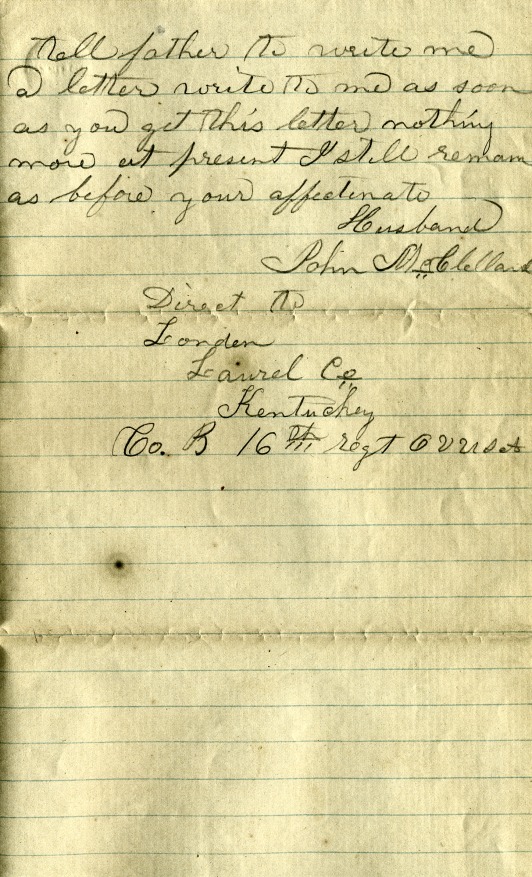 tell father to write me
a letter write to me as soon
as you get this letter nothing
more at present I still remain
as before your affectinate
Husband
John McClelland
Direct to
Londen
Laurel Co
Kentuckey
Co. B 16th regt O V U S A